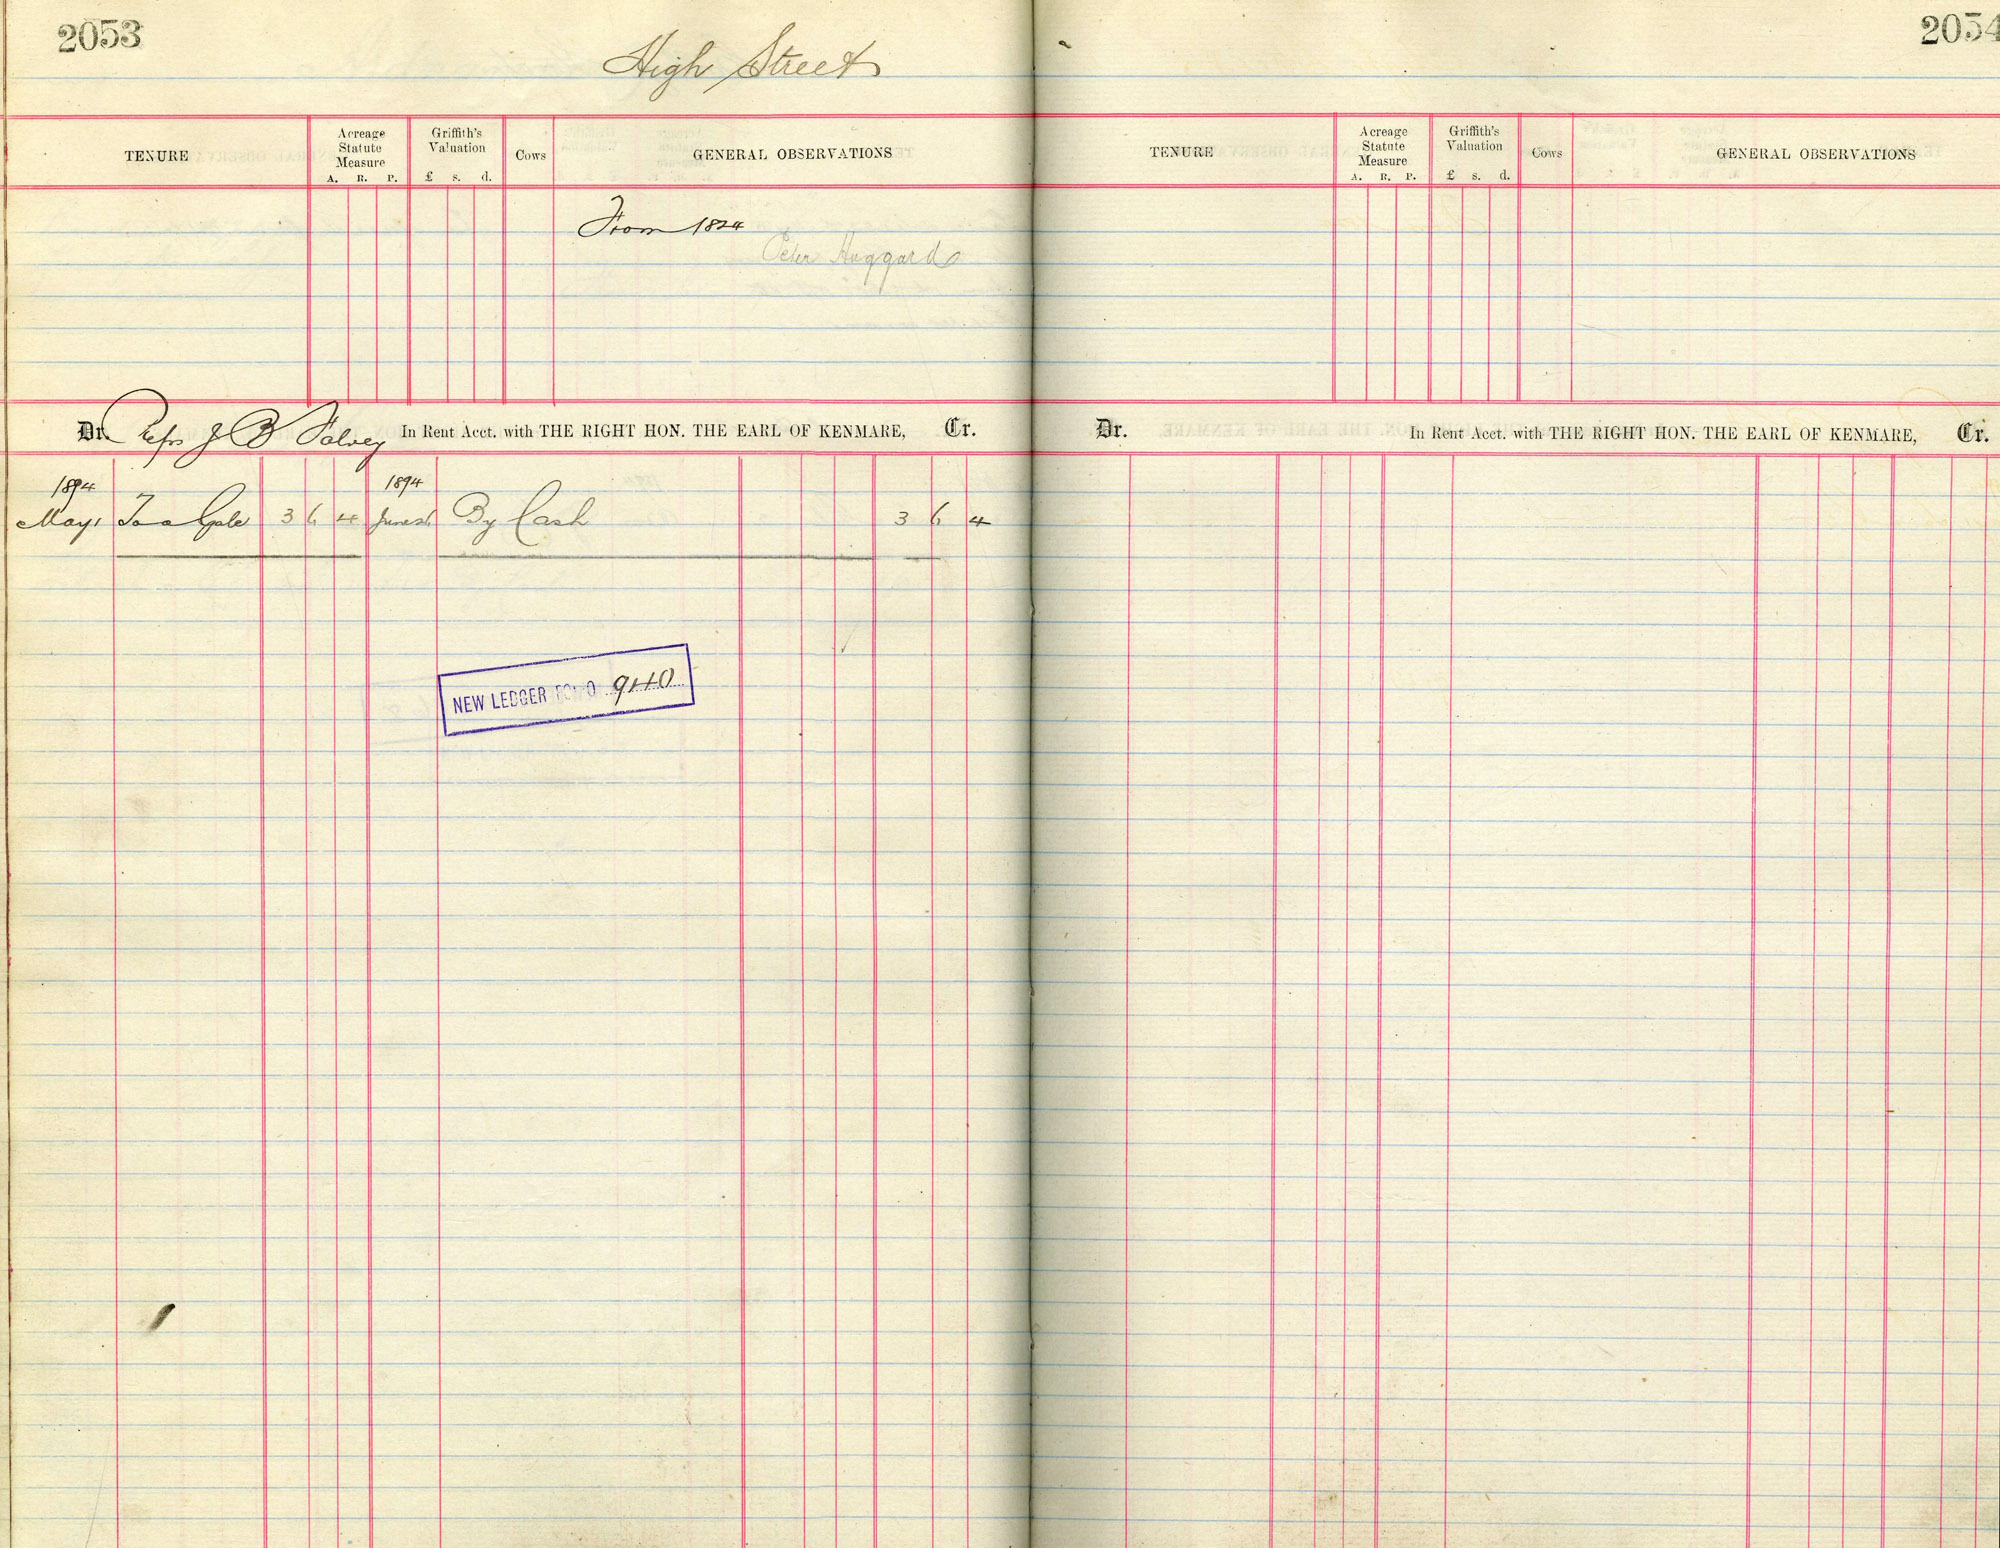 2053
High Street
TENURE
Acreage Statute Measure
A. R. P.
Griffith's Valuation
£ s. d.
Cows
GENERAL OBSERVATIONS
From 1824
Peter Huggard
Dr. Reps J B Falvey In Rent Acct. with THE RIGHT HON. THE EARL OF KENMARE, Cr.
1894 1894
May 1 To a Gale 3 6 4 June By Cash 3 6 4
NEW LEDGER FOLIO
2054
TENURE
Acreage Statute Measure
A. R. P.
Griffith's Valuation
£ s. d.
Cows
GENERAL OBSERVATIONS
Dr. In Rent Acct. with THE RIGHT HON. THE EARL OF KENMARE, Cr.